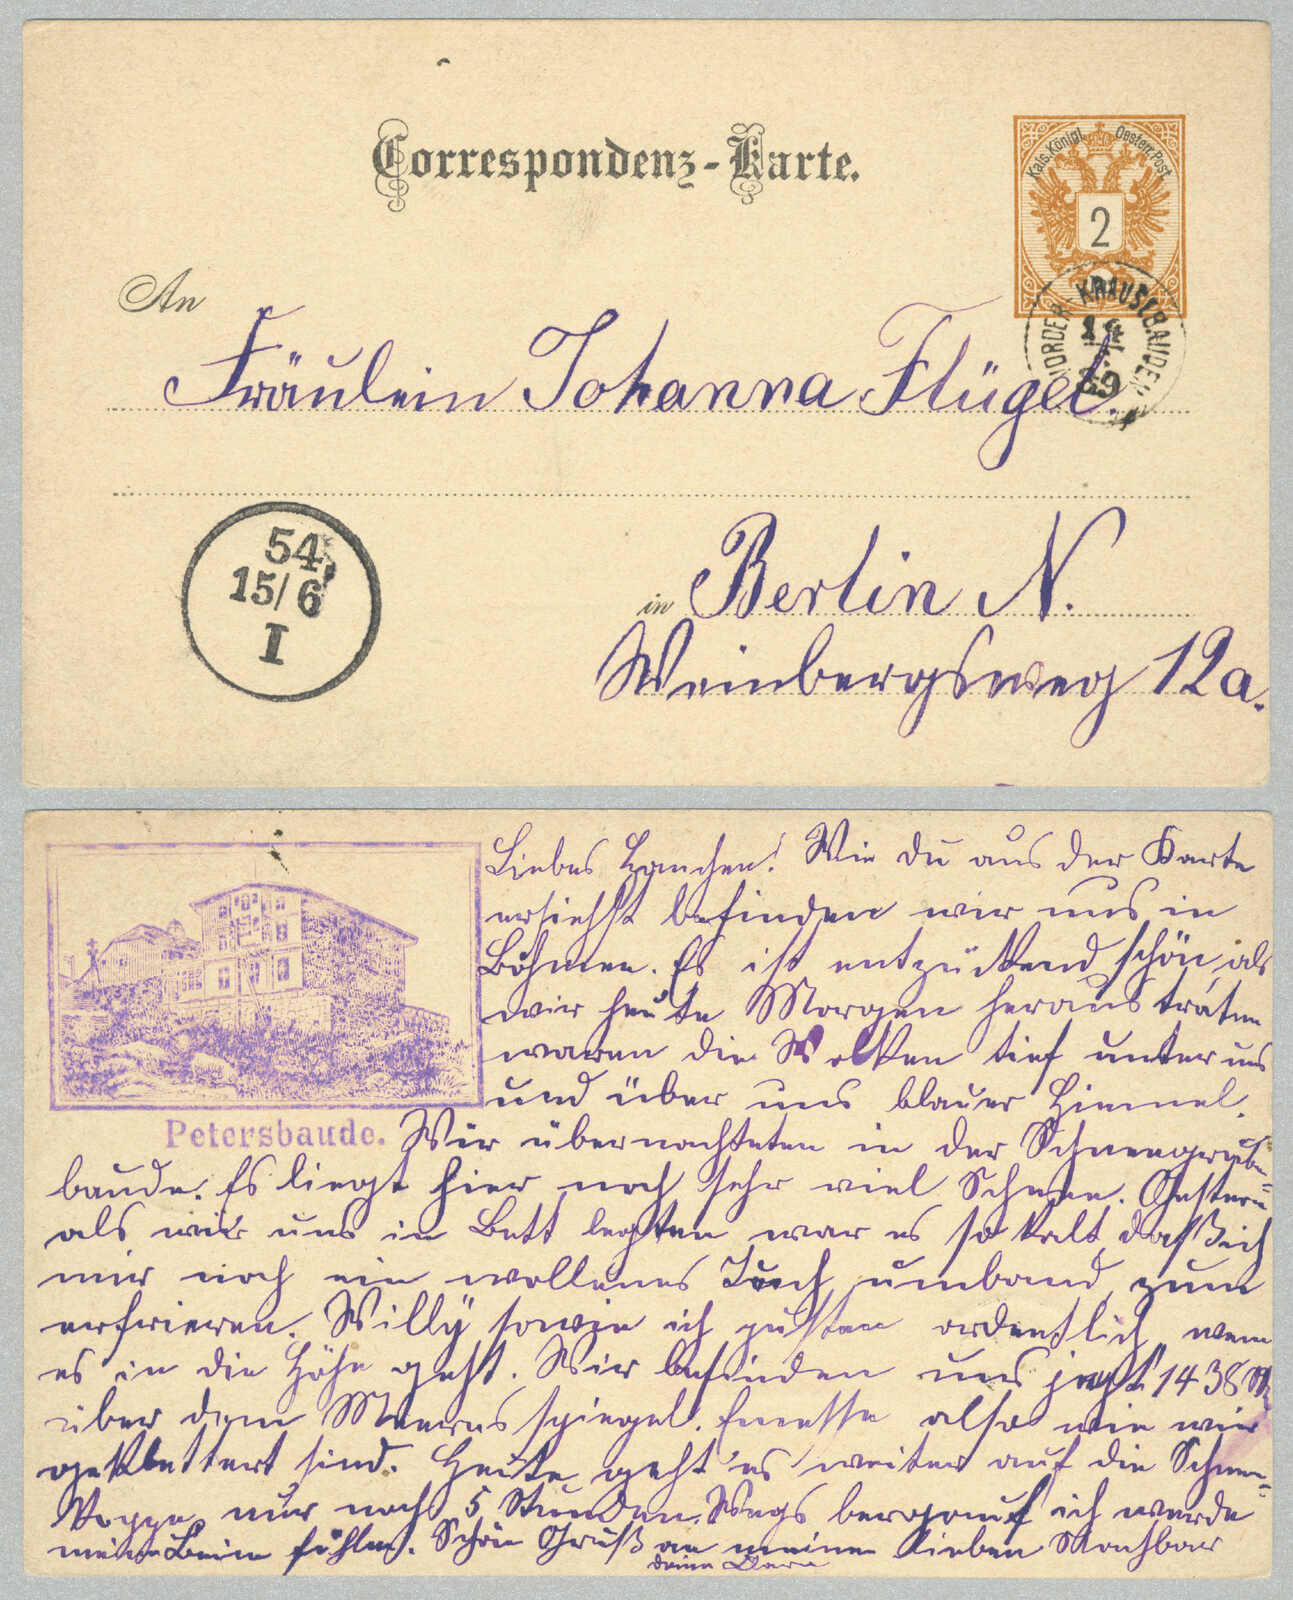 Correspondenz-Karte.
Kais. Königl. Oesterr. Post.
2
VORDER-KRAUSEBAUDEN
89
An
Fräulein Johanna Flügel.
54.
15/6
I
in Berlin N.
Weinbergsweg 12a.
Liebes Hanchen! Wie du aus der Karte
ersiehst befinden wir uns in
Böhmen. Es ist entzückend schön, als
wir heute Morgen heraus träten
waren die Wolken tief unter uns
und über uns blauer Himmel.
Petersbaude.
Wir übernachteten in der Schneegruben-
baude. Es liegt hier noch sehr viel Schnee. Gestern
als wir uns in Bett legten war es so kalt, daß ich
mir noch ein wollenes Tuch umband, zum
erfrieren. Willy sowie ich pusten ordentlich wenn
es in die Höhe geht. Wir befinden uns jetzt 1438 M
über dem Meeresspiegel. Ermesse also wie wir
geklettert sind. Heute geht es weiter auf die Schnee-
Koppe, nur noch 5 Stunden Wegs bergauf ich werde
meine Beine fühlen. Schön Gruß an meinen lieben Nachbar
deine